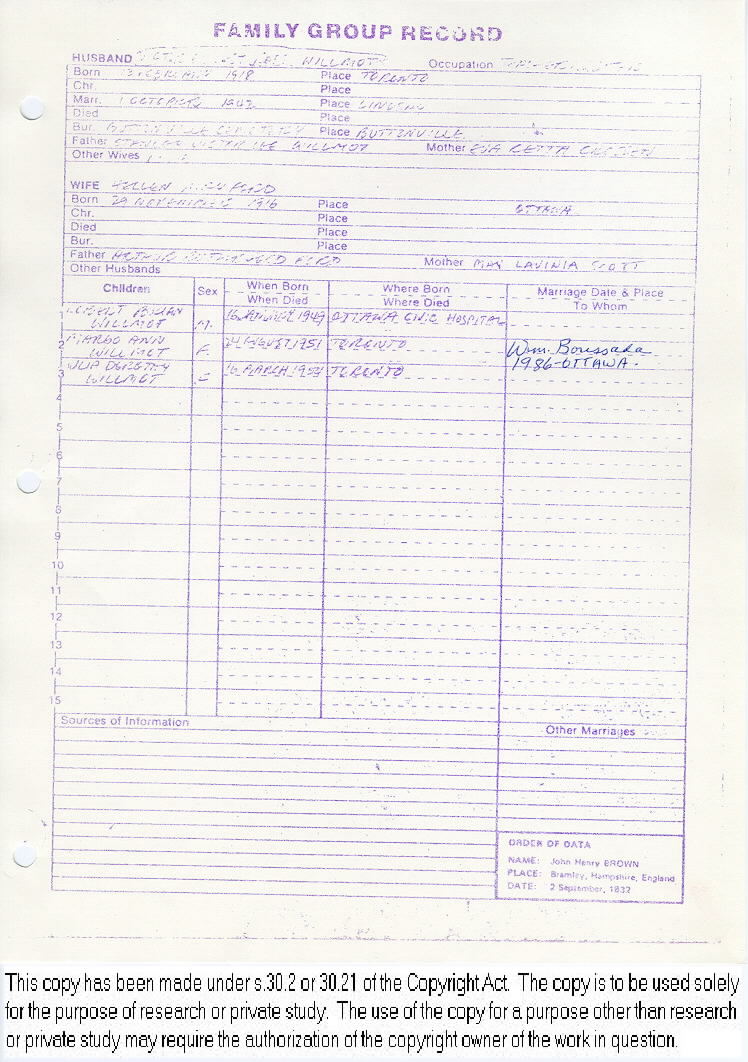 FAMILY GROUP RECORD
HUSBAND WILLMOT Occupation
Born 1918 Place TORONTO
Chr. Place
Marr. 1 OCTOBER 1942 Place
Died Place
Bur. BUTTONVILLE CEMETERY Place BUTTONVILLE
Father STANLEY VICTOR LEE WILLMOT Mother EVA RETTA
Other Wives
WIFE FORD
Born 29 NOVEMBER 1916 Place OTTAWA
Chr. Place
Died Place
Bur. Place
Father ARTHUR RUTHERFORD FORD Mother MAY LAVINIA SCOTT
Other Husbands
Children Sex When Born Where Born Marriage Date & Place
When Died Where Died To Whom
1 WILLMOT M. 16 JANUARY 1949 OTTAWA CIVIC HOSPITAL
2 MARGO ANN WILLMOT F. 24 AUGUST 1951 TORONTO Wm. Boussada
1986-OTTAWA.
3 DOROTHY WILLMOT 16 MARCH TORONTO
4
5
6
7
8
9
10
11
12
13
14
15
Sources of Information Other Marriages
ORDER OF DATA
NAME: John Henry BROWN
PLACE: Bramley, Hampshire, England
DATE: 2 September, 1832
This copy has been made under s.30.2 or 30.21 of the Copyright Act. The copy is to be used solely
for the purpose of research or private study. The use of the copy for a purpose other than research
or private study may require the authorization of the copyright owner of the work in question.